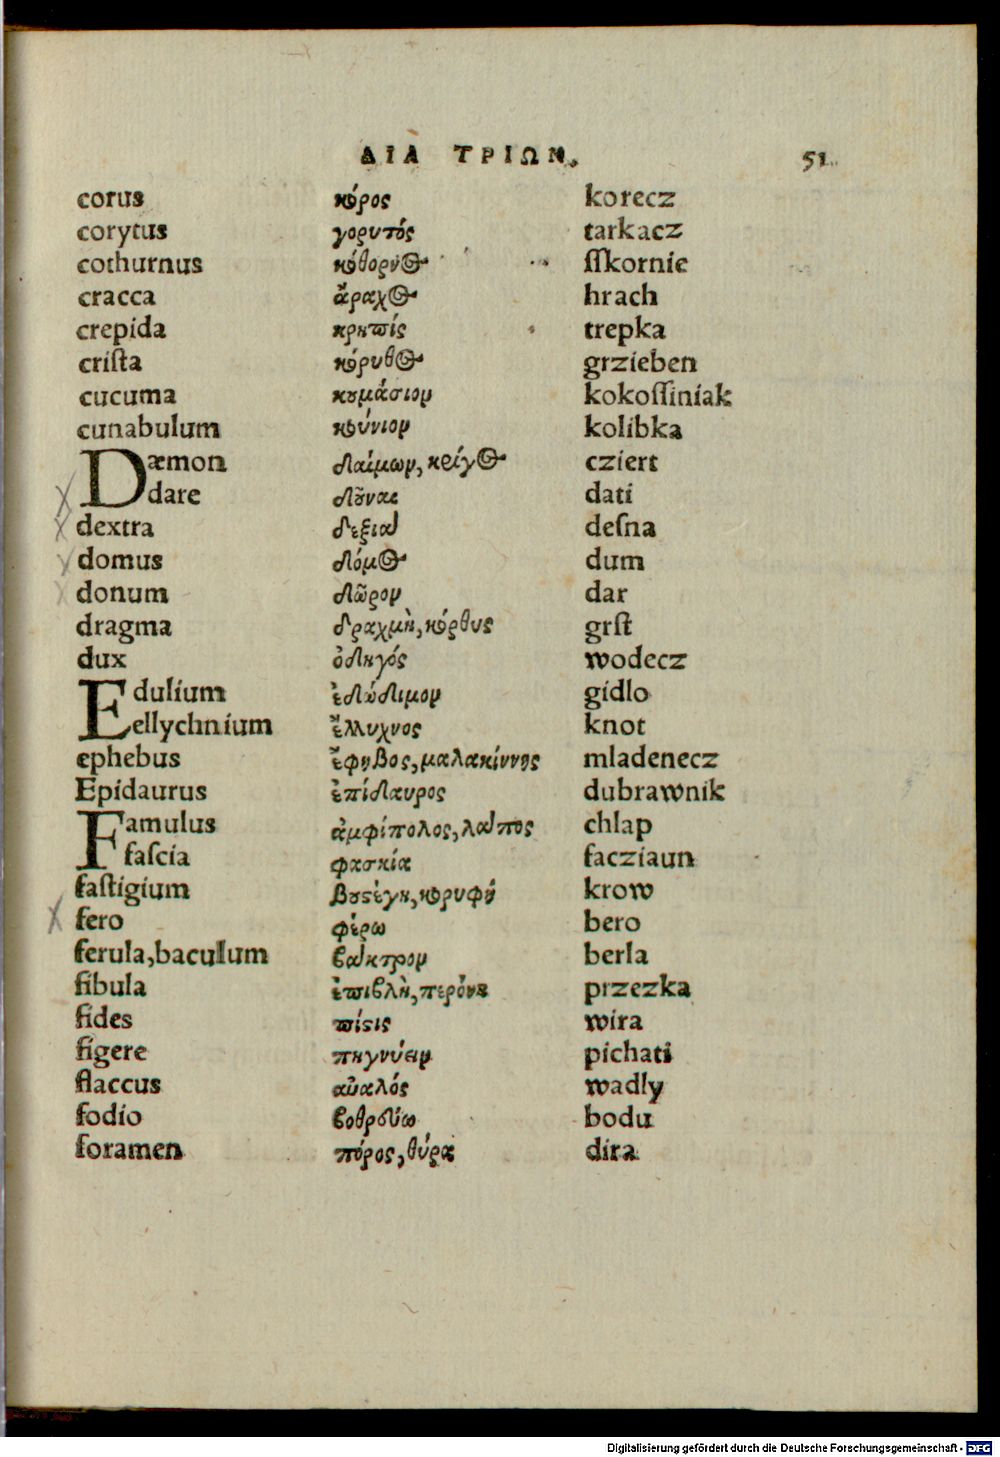 ΔΙΑ ΤΡΙΩΝ. 51
corus κόρος korecz
corytus γορυτός tarkacz
cothurnus κόθορνος ſſkornie
cracca ἄραχος hrach
crepida κρηπίς trepka
criſta κόρυθος grzieben
cucuma κουμάσιον kokoſſiniak
cunabulum κούνιον kolibka
Dæmon δαίμων, κείγος cziert
dare δοῦναι dati
dextra δεξιὰ deſna
domus δόμος dum
donum δῶρον dar
dragma δραχμὴ, κόρθυς grſt
dux ὁδηγός wodecz
Edulium ἐδώδιμον gidlo
ellychnium ἔλλυχνος knot
ephebus ἔφηβος, μαλακίννης mladenecz
Epidaurus ἐπίδαυρος dubrawnik
Famulus ἀμφίπολος, λάτρος chlap
faſcia φασκία facziaun
faſtigium κορυφή krow
fero φέρω bero
ferula, baculum βάκτρον berla
fibula ἐπιβλὴ, περόνη przezka
fides πίστις wira
figere πηγνύειν pichati
flaccus αὐαλός wadly
fodio βοθρεύω bodu
foramen πόρος, θύρα dira
Digitalisierung gefördert durch die Deutsche Forschungsgemeinschaft - DFG